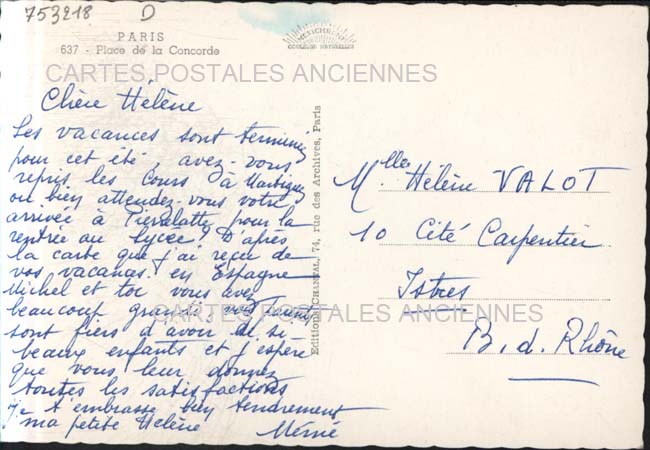 753218 D
PARIS
637 - Place de la Concorde
MEXICHROME
COULEURS NATURELLES
CARTES POSTALES ANCIENNES
Chère Hélène
Les vacances sont terminées
pour cet été, avez-vous
repris les cours à Martigues
ou bien attendez-vous votre
arrivée à Pierrelatte pour la
rentrée au lycée? D'après
la carte que j'ai reçu de
vos vacances en Espagne
Michel et toi vous avez
beaucoup grandi, vos parents
sont fiers d'avoir de si
beaux enfants et j'espère
que vous leur donnez
toutes les satisfactions
je t'embrasse bien tendrement
ma petite Hélène Mémé
Editions CHANTAL, 74, rue des Archives, Paris
Mlle Hélène VALOT
10 Cité Carpentier
Istres
CARTES POSTALES ANCIENNES
B. d. Rhône